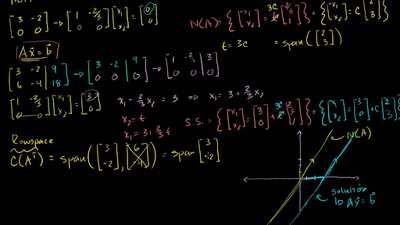 [3 -2; 0 0] → [1 -2/3; 0 0][x₁; x₂] = [0; 0]
N(A) = {[x₁; x₂] = 3c[2/3; 1]} = {[x₁; x₂] = c[2; 3]}
t = 3c
= span([2; 3])
Ax⃗ = b⃗
[3 -2 | 9; 6 -4 | 18] → [3 -2 | 9; 0 0 | 0] → [1 -2/3 | 3; 0 0 | 0]
[1 -2/3; 0 0][x₁; x₂] = [3; 0]
x₁ - 2/3 x₂ = 3 → x₁ = 3 + 2/3 x₂
x₂ = t
x₁ = 3 + 2/3 t
S.S. = {[x₁; x₂] = [3; 0] + 3c[2/3; 1]} = {[x₁; x₂] = [3; 0] + c[2; 3]}
Rowspace
C(Aᵀ) = span([3; -2], [6; -4]) = span[3; -2]
N(A)
solution
to Ax⃗ = b⃗